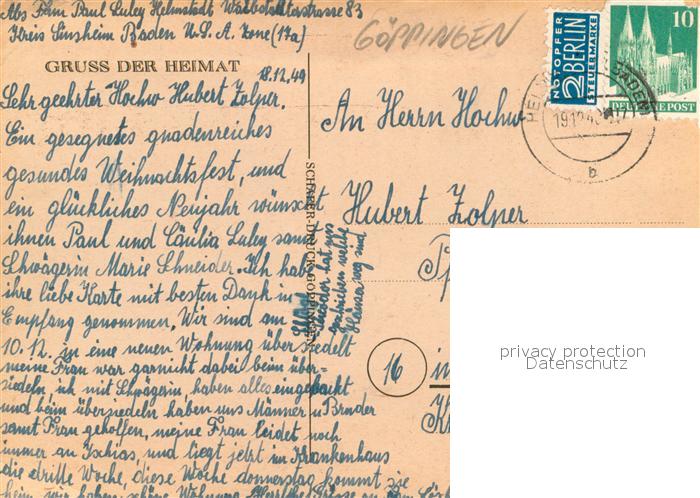 Abs Fam Paul Luley Helmstadt Waibstatterstrasse 83
Kreis Sinsheim Baden U.S.A. Zone (17a)
GÖPPINGEN
GRUSS DER HEIMAT
18.12.49
Sehr geehrter Hochw Hubert Zolper.
Ein gesegnetes gnadenreiches
gesundes Weihnachtsfest, und
ein glückliches Neujahr wünscht
ihnen Paul und Cäcilia Luley samt
Schwägerin Marie Schneider. Ich habe
ihre liebe Karte mit besten Dank in
Empfang genommen. Wir sind am
10.12. in eine neuen Wohnung übersiedelt
meine Frau war garnicht dabei beim über-
siedeln ich mit Schwägerin, haben alles eingepackt
und beim übersiedeln haben uns Männer u Bruder
samt Frau geholfen, meine Frau leidet noch
immer an Ischias, und liegt jetzt im Krankenhaus
die dritte Woche, diese Woche donnerstag kommt sie
heim wir haben schöne Wohnung
hat uns
geschrieben welche
Häuser
SCHÄFER-DRUCK, GÖPPINGEN
An Herrn Hochw
Hubert Zolper
16
NOTOPFER
2 BERLIN
STEUERMARKE
10
DEUTSCHE POST
19.12.49
b
privacy protection
Datenschutz